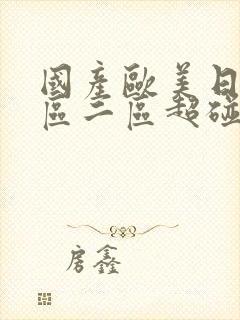 國產歐美日
區二區超碰
房鑫